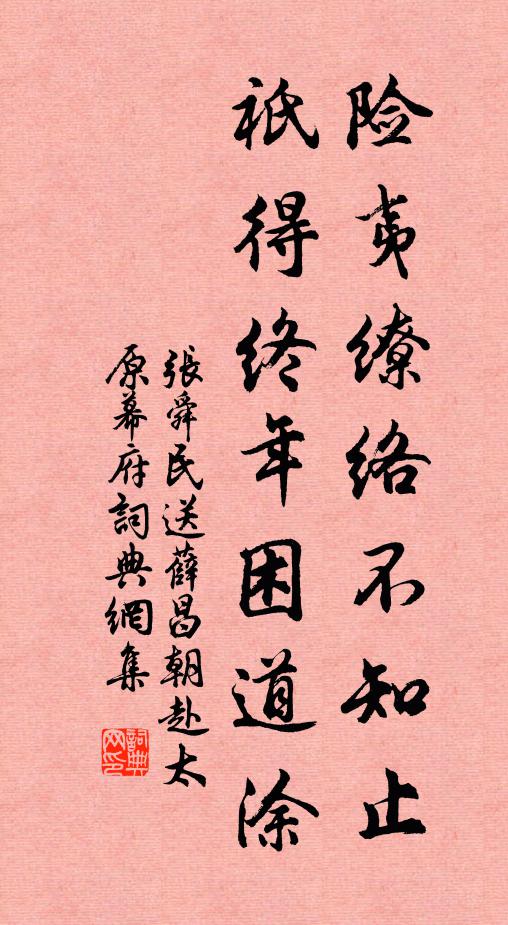 险夷缭络不知止
祇得终年困道涂
張舜民送薛昌朝赴太
原幕府詞典網集
詞典
网印